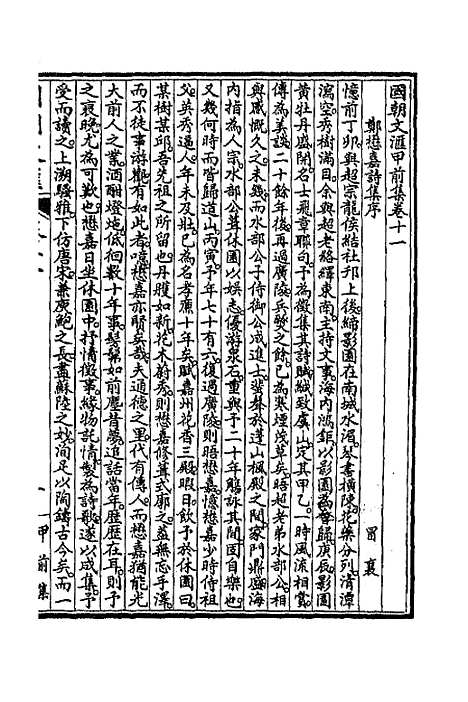 國朝文滙甲前集卷十一
鄭懋嘉詩集序
冒襄
憶前丁卯與超宗龍侯結社邗上後締影園在南城水湄琴書橫陳花藥分列清潭
瀉空秀樹滿目余與超老絡繹東南主持文事海內鴻鉅以影園為會歸庚辰影園
黃牡丹盛開名士飛章聯句予為徵集其詩賦緘致虞山定其甲乙一時風流相賞
傳為美談二十餘年後再過廣陵兵燹之餘已為寒煙茂草矣晤超老弟水部公相
與感慨久之未幾而水部公子侍御公成進士蜚聲於蓬山楓殿之間家門鼎盛海
內指為人宗水部公葺休園以娛志優游泉石重與予二十年觴詠其間固自樂也
又幾何時而皆歸道山丙寅予年七十有六復過廣陵則晤懋嘉憶懋嘉少時侍祖
父英秀逼人年未及壯已為名孝廉十年矣賦嘉州花香三殿暇日飲予於休園曰
某樹某邱吾先祖之所留也丹雘如新花木蔚秀則懋嘉修葺式廓之益無忘手澤
而不徒事游觀有如此者噫懋嘉亦賢矣哉夫通德之里代有傳人而懋嘉猶能光
大前人之業酒酣燈灺低徊數十年事髣髴如前塵昔夢追話當年歷歷在耳則予
之衰晚尤為可歎也懋嘉日坐休園中抒情徵事緣物託情製為詩歌遂以成集予
受而讀之上溯騷雅下仿唐宋兼庾鮑之長盡蘇陸之妙洵足以陶鑄古今矣而一
一 甲前集